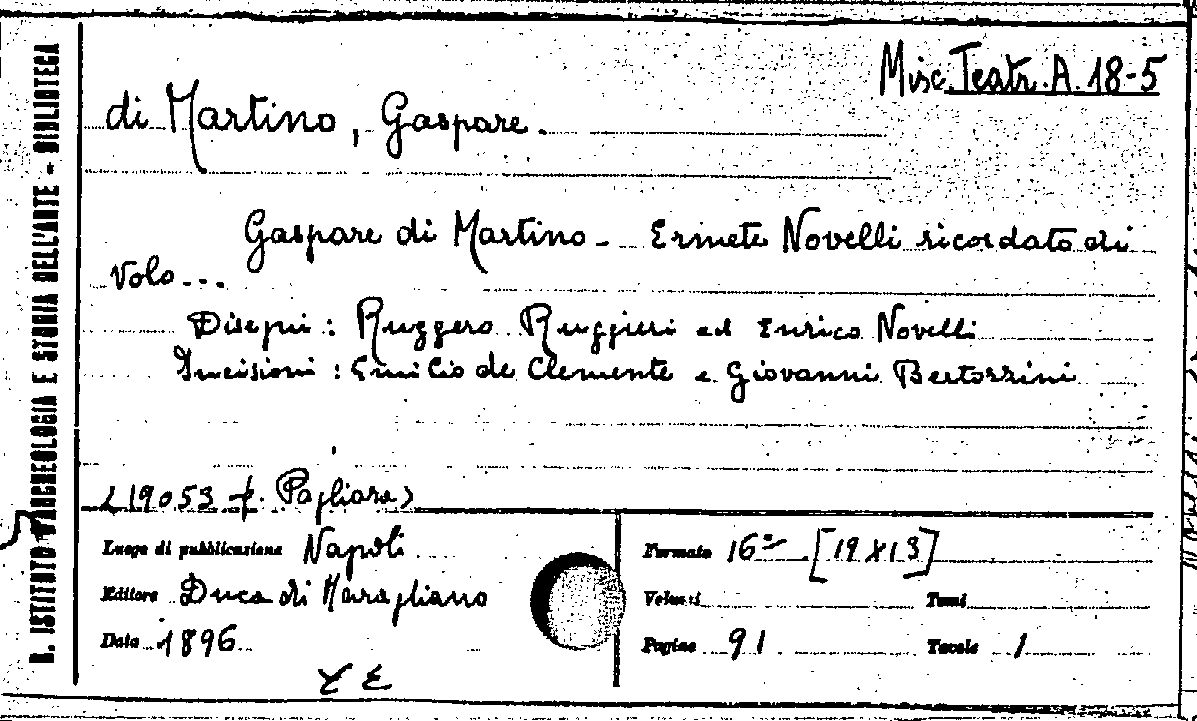 R. ISTITUTO D'ARCHEOLOGIA E STORIA DELL'ARTE - BIBLIOTECA
Misc. Teatr. A. 18-5
di Martino, Gaspare.
Gaspare di Martino - Ermete Novelli ricordato di
volo...
Disegni: Ruggero Ruggieri ed Enrico Novelli
Incisioni: Emilio de Clemente e Giovanni Bertorrini
(19053 f. Pagliare)
Luogo di pubblicazione Napoli
Editore Duca di Maragliano
Data 1896
Formato 16º [19x13]
Volumi Tomi
Pagine 91 Tavole 1